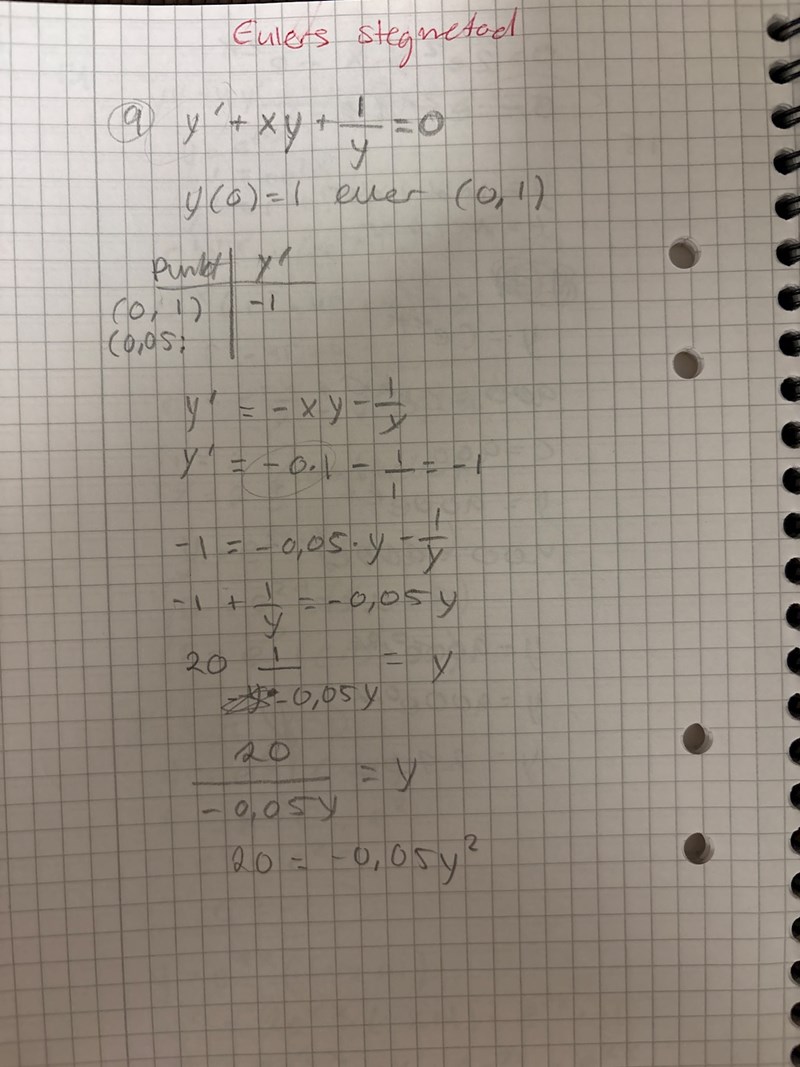 Eulers stegmetod
9 y' + xy + 1/y = 0
y(0) = 1 euer (0,1)
punkt | y'
(0, 1) | -1
(0,05;
y' = -xy - 1/y
y' = -0·1 - 1/1 = -1
-1 = -0,05·y - 1/y
-1 + 1/y = -0,05y
20 1/-0,05y = y
20/-0,05y = y
20 = -0,05y²